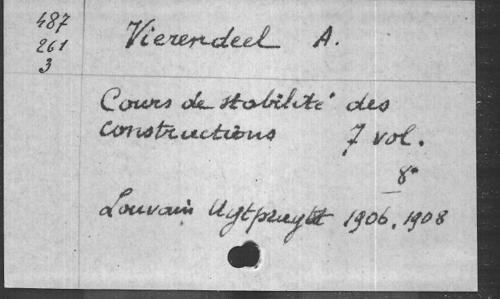 487
261
3
Vierendeel A.
Cours de stabilité des
constructions 7 vol.
8°
Louvain Uytpruyst 1906, 1908